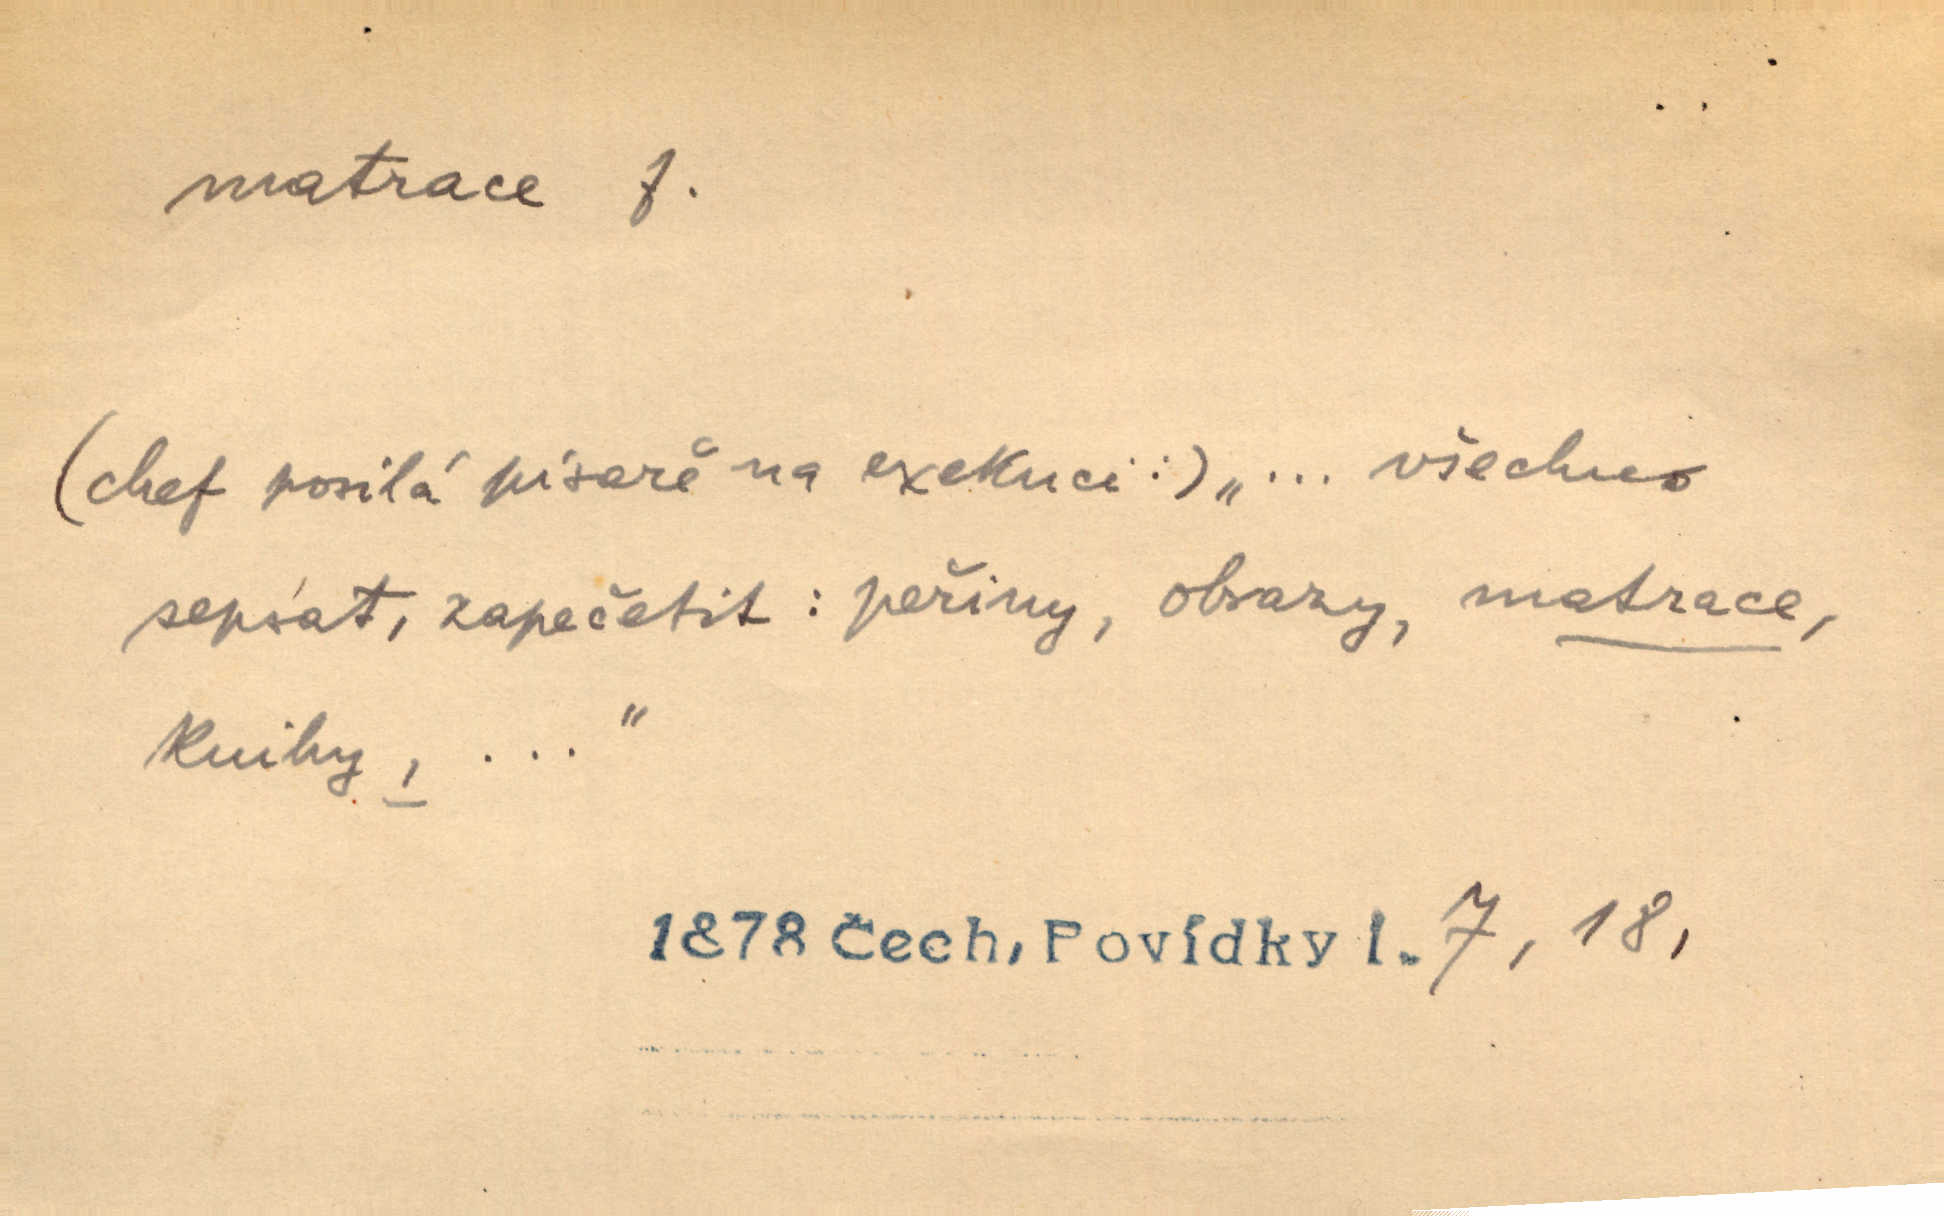 matrace f.
(chef posílá písaře na exekuci:) „... všechno
sepsat, zapečetit: peřiny, obrazy, matrace,
knihy, ..."
1878 Čech, Povídky I. 7, 18,